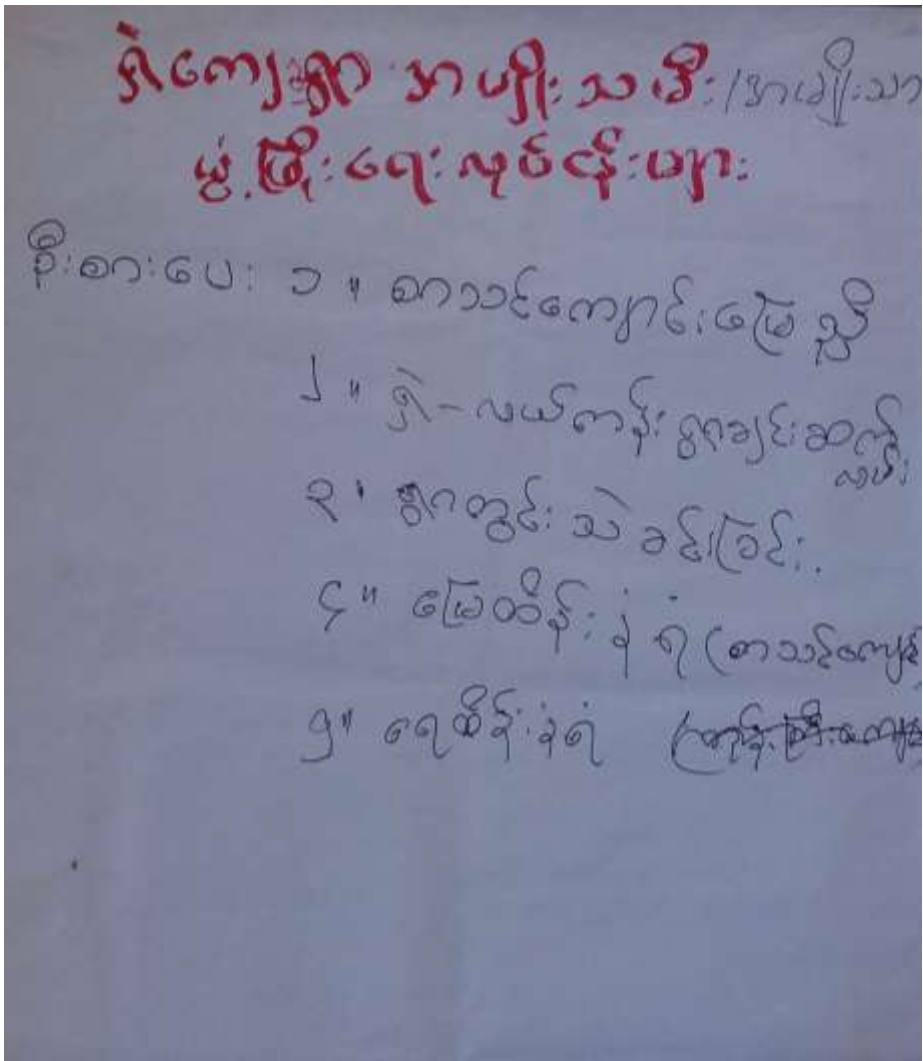 ရှဲကျေးရွာ အမျိုးသမီး/အမျိုးသာ
ဖွံ့ဖြိုးရေးလုပ်ငန်းများ
ဦးစားပေး ၁။ စာသင်ကျောင်းမြေညှိ
၂။ ရှဲ-လယ်ကန်း ရွာချင်းဆက်
လမ်း
၃။ ရွာတွင်း သဲခင်းခြင်း
၄။ မြေထိန်းနံရံ (စာသင်ကျော
၅။ ရေထိန်းနံရံ